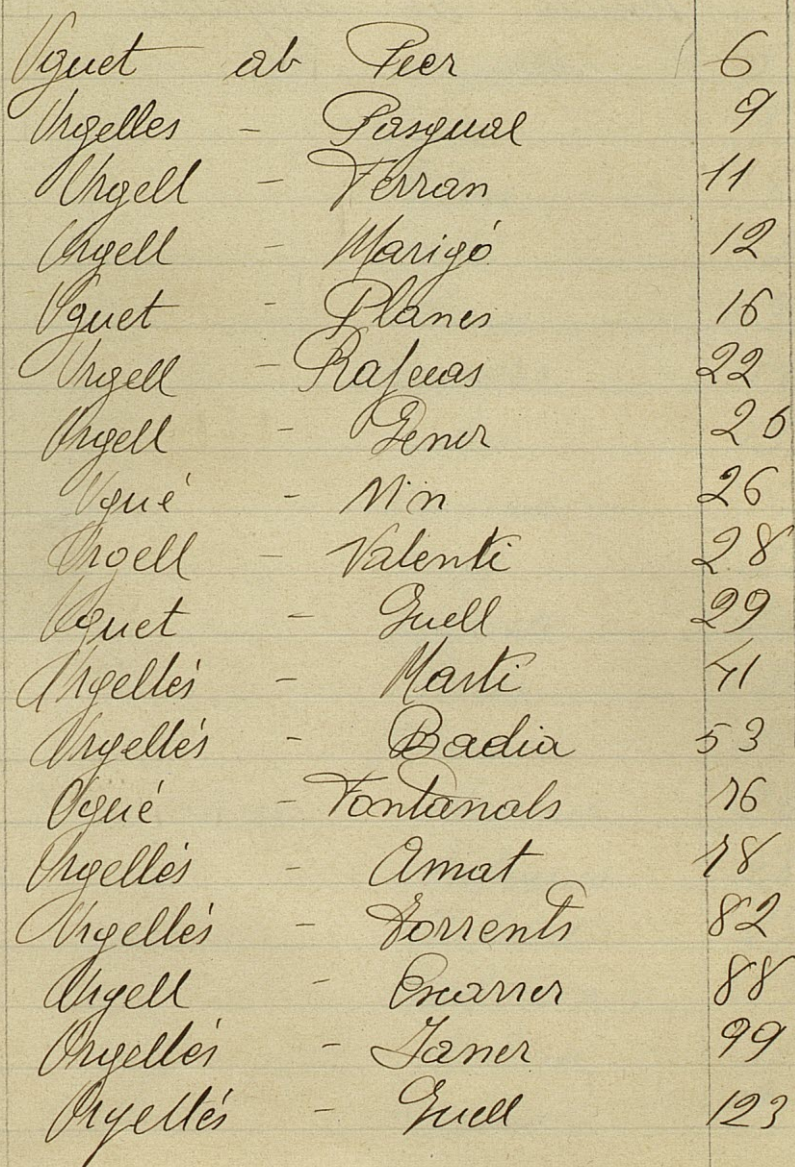 Uguet ab Peer 6
Urgelles - Pasqual 9
Urgell - Ferran 11
Urgell - Marigó 12
Uguet - Planes 16
Urgell - Rafecas 22
Urgell - Gener 26
Ugué - Nin 26
Urgell - Valenti 28
Uguet - Guell 29
Urgellés - Marti 41
Urgellés - Badia 53
Ugué - Fontanals 76
Urgellés - Amat 78
Urgellés - Torrents 82
Urgell - Escarrer 88
Urgellés - Janer 99
Urgellés - Guell 123